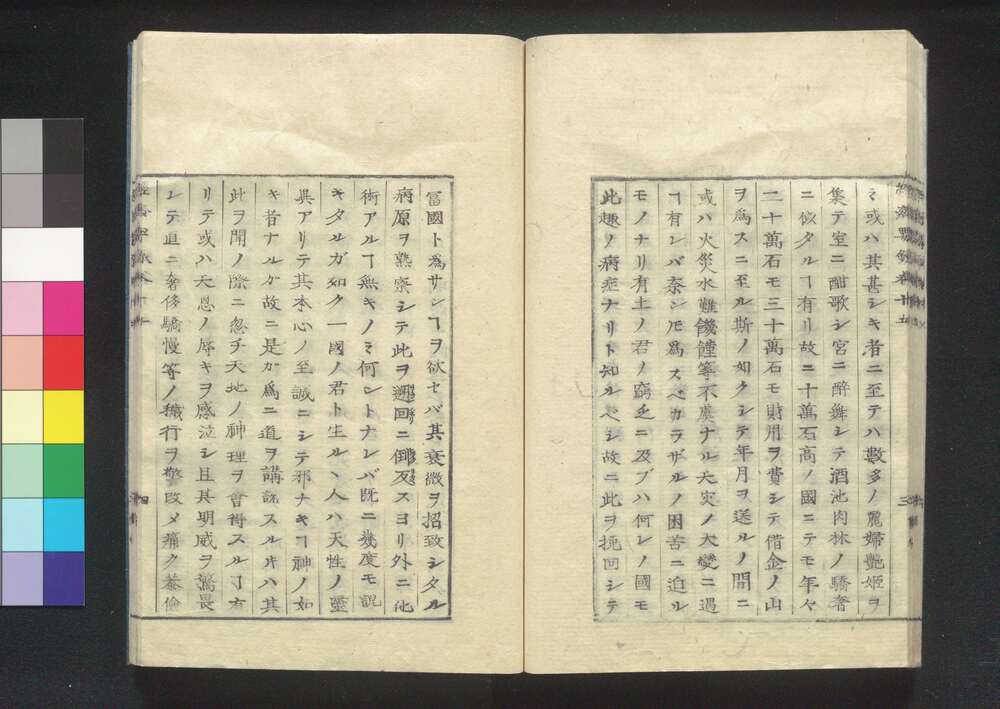 ミ或ハ其甚シキ者ニ至テハ數多ノ麗婦艶姬ヲ
集テ室ニ酣歌シ宮ニ醉舞シテ酒池肉林ノ驕奢
ニ似タルヿ有リ故ニ十萬石高ノ國ニテモ年々
二十萬石モ三十萬石モ財用ヲ費シテ借金ノ山
ヲ爲スニ至ル斯ノ如クシテ年月ヲ送ルノ間ニ
或ハ火災水難饑饉等不虞ナル天災ノ大變ニ遇
ヿ有レバ奈ントモ爲スベカラザルノ困苦ニ迫ル
モノナリ有土ノ君ノ窮乏ニ及ブハ何レノ國モ
此趣ノ病症ナリト知ルベシ故ニ此ヲ挽回シテ
富國ト爲サンヿヲ欲セバ其衰微ヲ招致シタル
病原ヲ熟察シテ此ヲ廻回ニ倒反スヨリ外ニ他
術アルヿ無キノミ何ントナレバ既ニ幾度モ説
キタルガ如ク一國ノ君ト生ルヽ人ハ天性ノ靈
異アリテ其本心ノ至誠ニシテ邪ナキヿ神ノ如
キ者ナルガ故ニ是ガ爲ニ道ヲ講説スル片ハ其
此ヲ聞ノ際ニ忽チ天地ノ神理ヲ會得スルヿ有
リテ或ハ天恩ノ辱キヲ感泣シ且其明威ヲ驚畏
シテ直ニ奢侈驕慢等ノ穢行ヲ警改メ痛ク恭儉